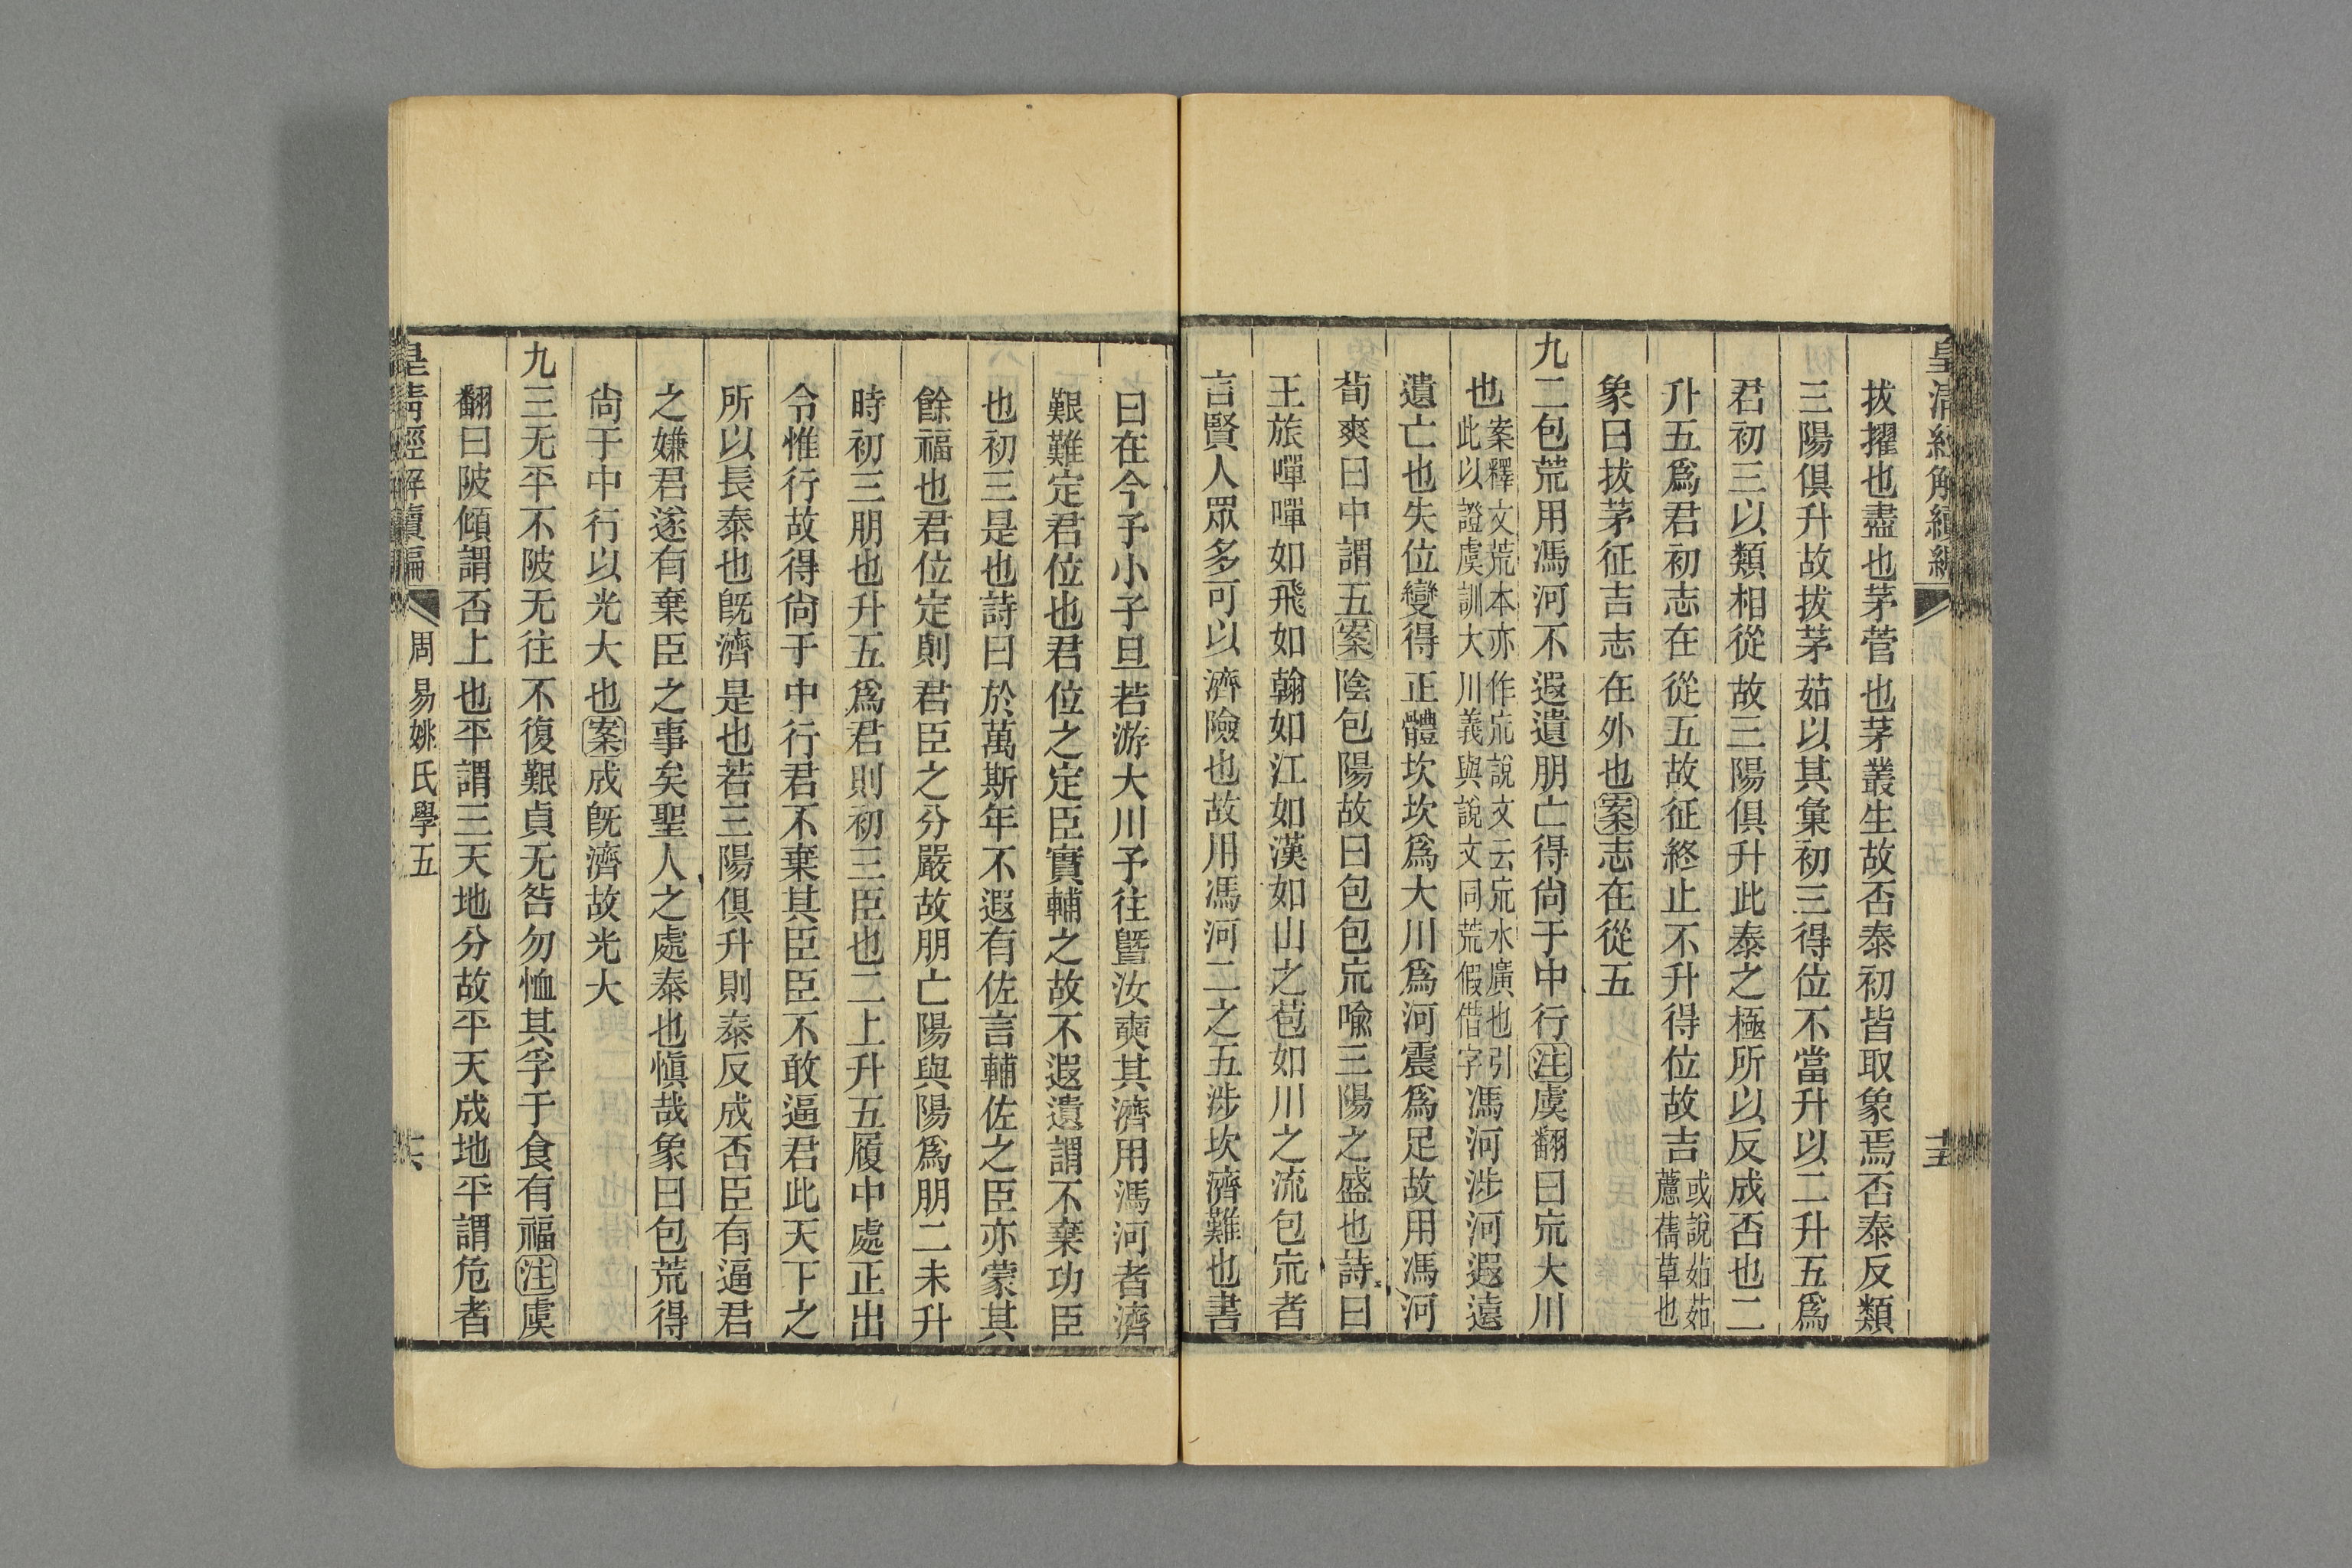 皇清經解續編
拔擢也盡也茅菅也茅叢生故否泰初皆取象焉否泰反類
三陽俱升故拔茅茹以其彙初三得位不當升以二升五爲
君初三以類相從故三陽俱升此泰之極所以反成否也二
升五爲君初志在從五故征終止不升得位故吉
或說茹茹
藘蒨草也
象曰拔茅征吉志在外也案志在從五
九二包荒用馮河不遐遺朋亡得尙于中行注虞翻曰巟大川
也
案釋文荒本亦作巟說文云巟水廣也引
此以證虞訓大川義與說文同荒假借字
馮河涉河遐遠
遺亡也失位變得正體坎坎爲大川爲河震爲足故用馮河
荀爽曰中謂五案陰包陽故曰包包巟喩三陽之盛也詩曰
王旅嘽嘽如飛如翰如江如漢如山之苞如川之流包巟者
言賢人眾多可以濟險也故用馮河二之五涉坎濟難也書
曰在今予小子旦若游大川予往曁汝奭其濟用馮河者濟
艱難定君位也君位之定臣實輔之故不遐遺謂不棄功臣
也初三是也詩曰於萬斯年不遐有佐言輔佐之臣亦蒙其
餘福也君位定則君臣之分嚴故朋亡陽與陽爲朋二未升
時初三朋也升五爲君則初三臣也二上升五履中處正出
令惟行故得尙于中行君不棄其臣臣不敢逼君此天下之
所以長泰也旣濟是也若三陽俱升則泰反成否臣有逼君
之嫌君遂有棄臣之事矣聖人之處泰也愼哉象曰包荒得
尙于中行以光大也案成旣濟故光大
九三无平不陂无往不復艱貞无咎勿恤其孚于食有福注虞
翻曰陂傾謂否上也平謂三天地分故平天成地平謂危者
皇清經解續編
周易姚氏學五